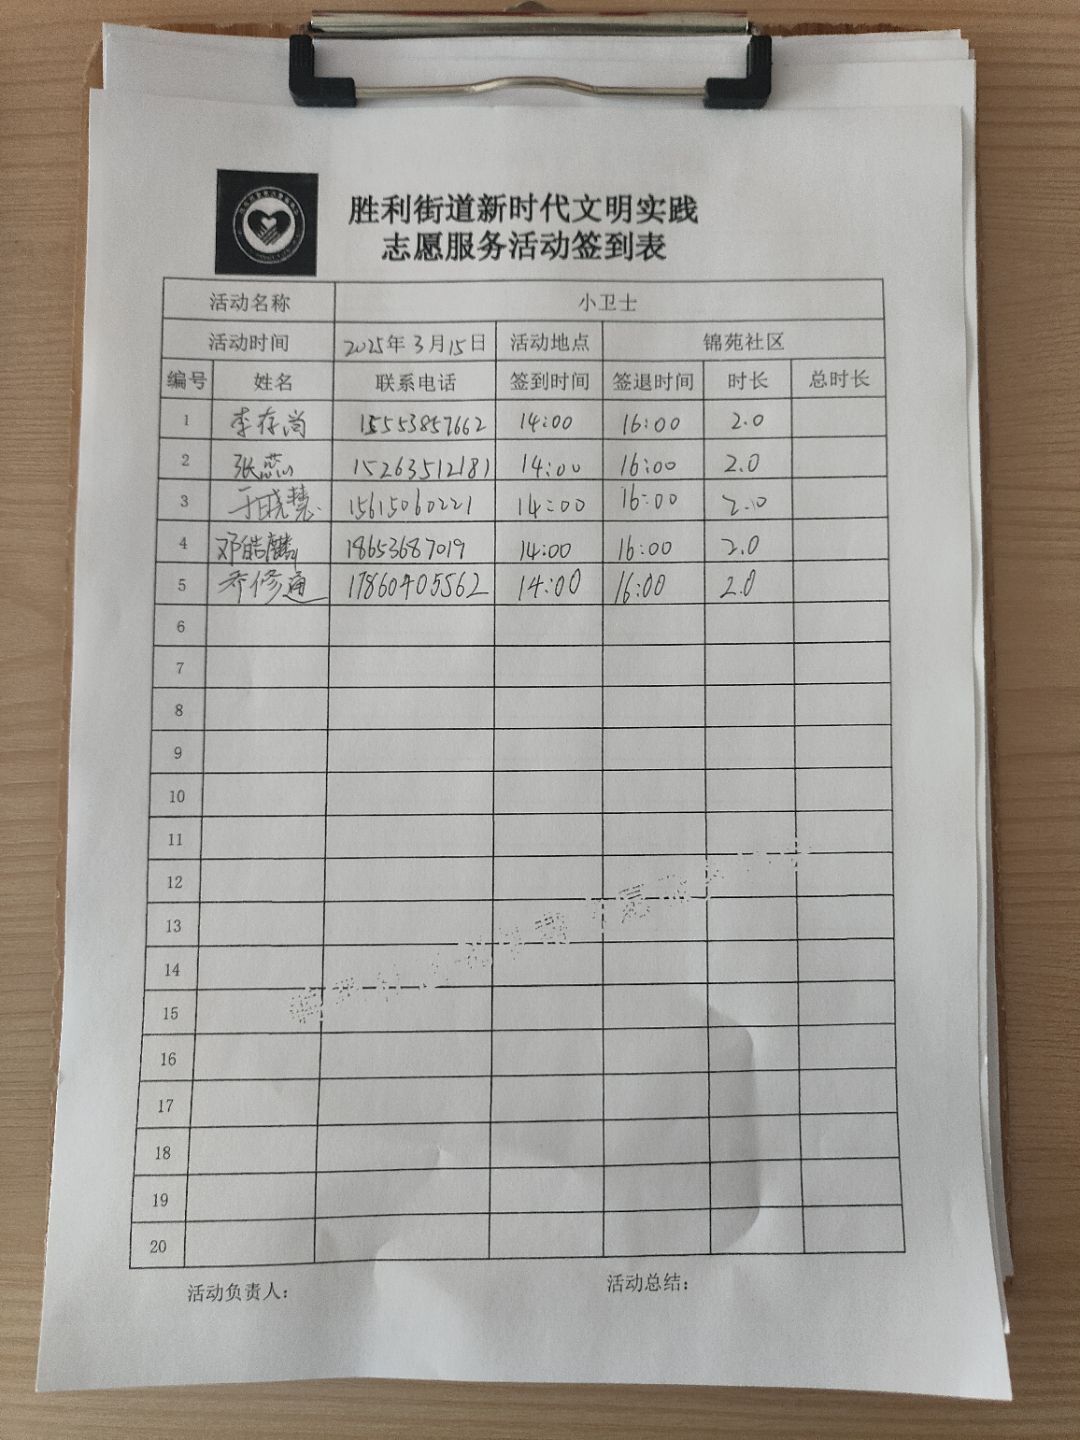 胜利街道新时代文明实践
志愿服务活动签到表
活动名称 小卫士
活动时间 2025年3月15日 活动地点 锦苑社区
编号 姓名 联系电话 签到时间 签退时间 时长 总时长
1 李存尚 15553857662 14:00 16:00 2.0
2 张蕊 15263512181 14:00 16:00 2.0
3 于晓慧 15615060221 14:00 16:00 2.0
4 邓皓麟 18653687019 14:00 16:00 2.0
5 乔修通 17860405562 14:00 16:00 2.0
6
7
8
9
10
11
12
13
14
15
16
17
18
19
20
活动负责人： 活动总结：